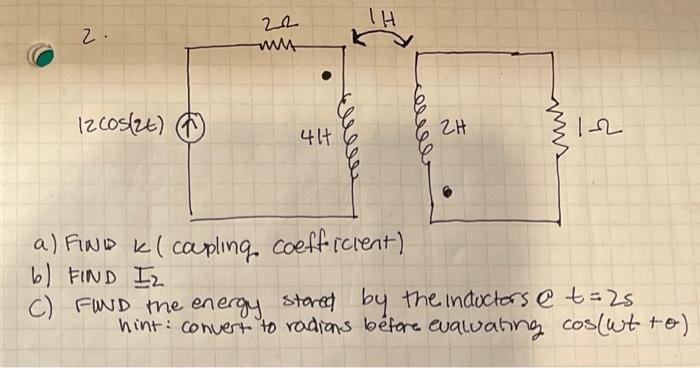 2.
2Ω
1H
12cos(2t)
4H
2H
1Ω
a) FIND k ( coupling coefficient)
b) FIND I2
C) FIND the energy stored by the inductors @ t=2s
hint: convert to radians before evaluating cos(ωt +θ)